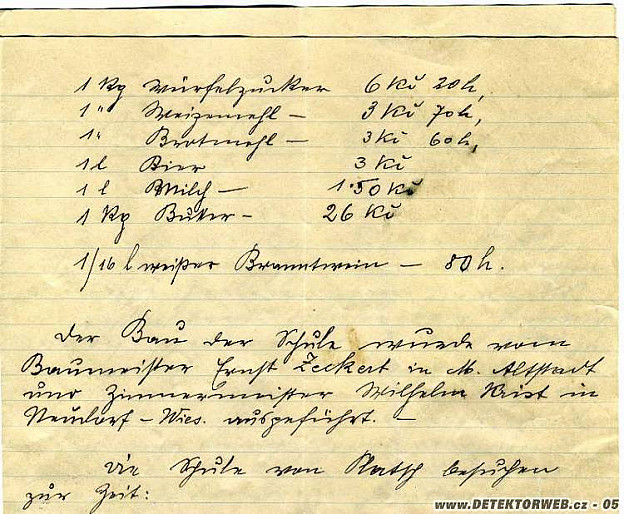 1 Kg Würfelzucker 6 Kč 20 h,
1 " Weizemehl — 3 Kč 70 h,
1 " Brotmehl — 3 Kč 60 h,
1 l Bier 3 Kč
1 l Milch — 1·50 Kč
1 Kg Buter - 26 Kč
1/16 l weißer Branntwein — 80 h.
Der Bau der Schule wurde vom
Baumeister Ernst Zeckert in M. Altstadt
und Zimmermeister Wilhelm Krist in
Neudorf - Wies. ausgeführt. —
Die Schule von Ratsch besuchen
zur Zeit:
www.DETEKTORWEB.cz - 05